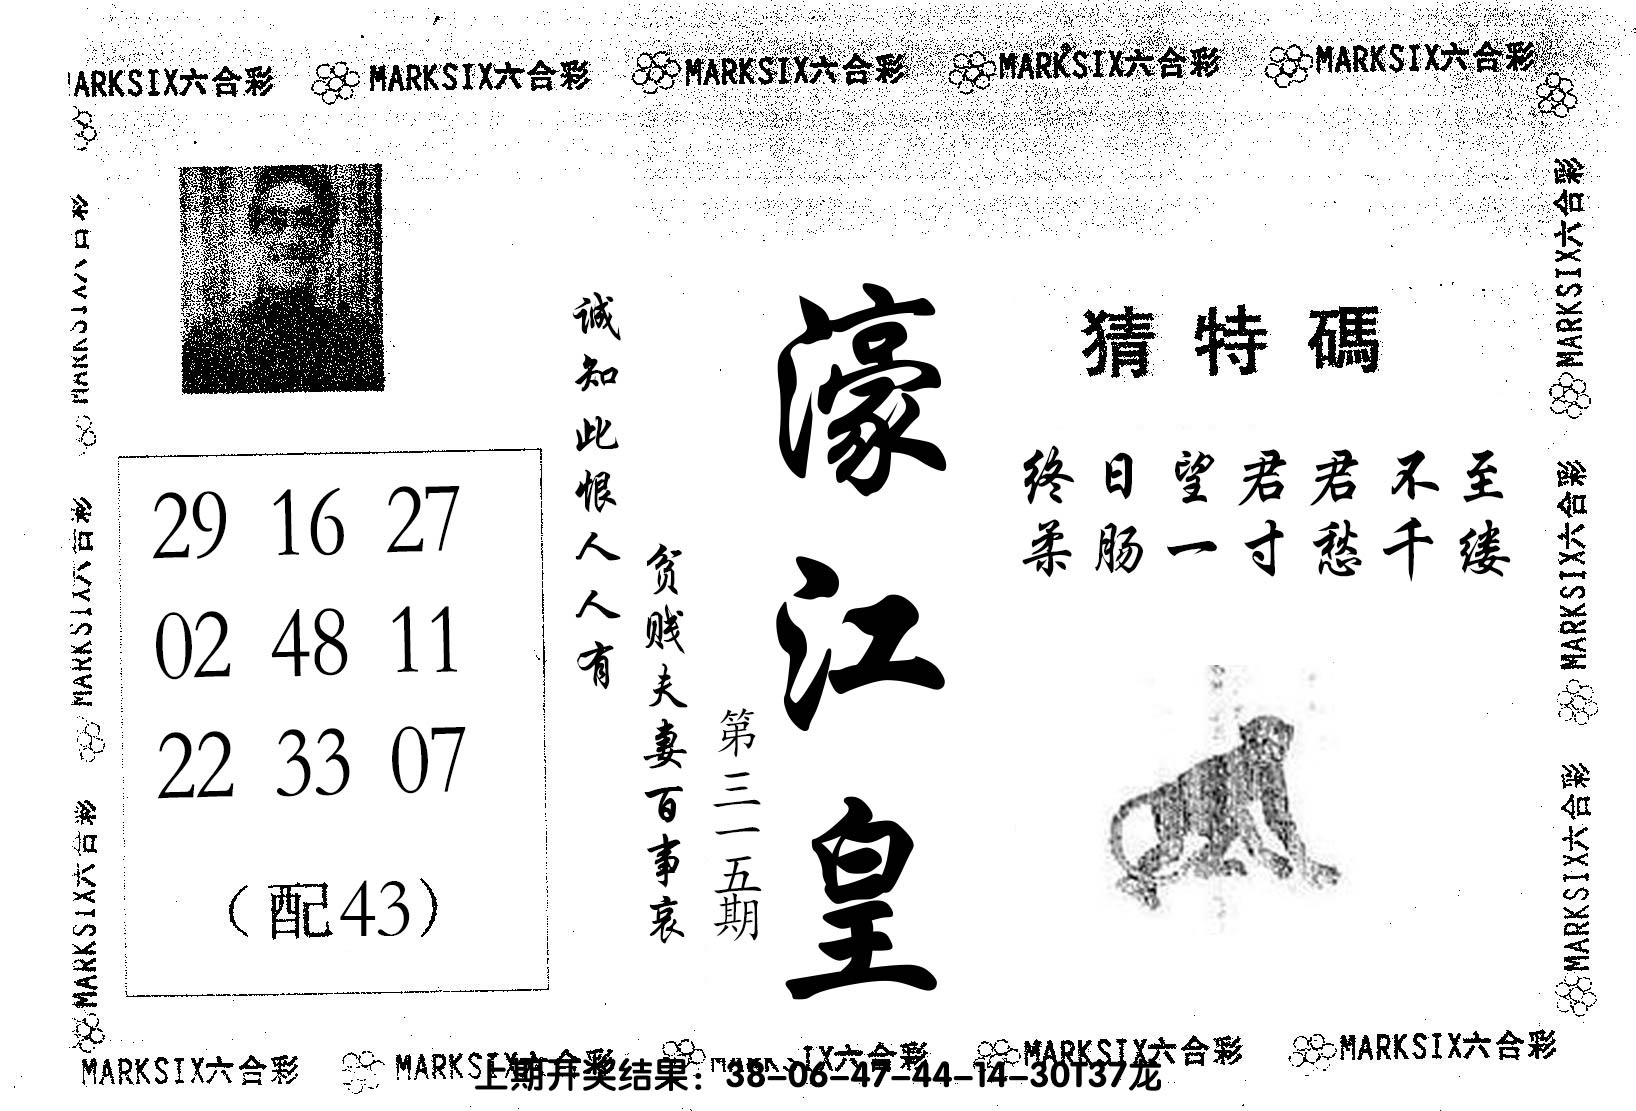 MARKSIX六合彩 MARKSIX六合彩 MARKSIX六合彩 MARKSIX六合彩 MARKSIX六合彩
猜特碼
终日望君君不至
柔肠一寸愁千缕
濠江皇
第三一五期
诚知此恨人人有
贫贱夫妻百事哀
29 16 27
02 48 11
22 33 07
（配43）
MARKSIX六合彩
MARKSIX六合彩
MARKSIX六合彩
MARKSIX六合彩
MARKSIX六合彩
MARKSIX六合彩
MARKSIX六合彩 MARKSIX六合彩 MARKSIX六合彩 MARKSIX六合彩 MARKSIX六合彩
上期开奖结果：38-06-47-44-14-30T37龙